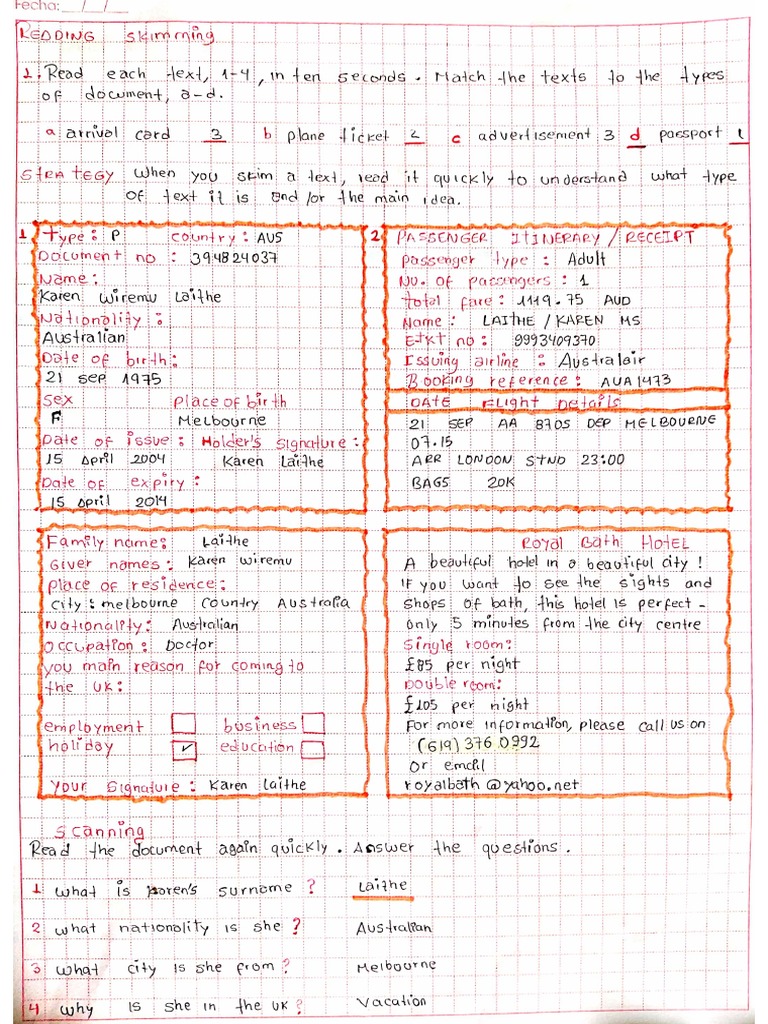 Fecha: / /
READING Skimming
1. Read each text, 1-4, in ten seconds. Match the texts to the types
of document, a-d.
a arrival card 3 b plane ticket 2 c advertisement 3 d passport 1
STRATEGY When you skim a text, read it quickly to understand what type
of text it is and/or the main idea.
1 Type: P Country: AUS
Document no: 394824037
Name:
Karen Wiremu Laithe
Nationality:
Australian
Date of birth:
21 Sep 1975
Sex Place of birth
F Melbourne
Date of issue: Holder's signature:
15 April 2004 Karen Laithe
Date of expiry:
15 April 2014
2 PASSENGER ITINERARY / RECEIPT
Passenger type: Adult
No. of passengers: 1
Total fare: 1119.75 AUD
Name: LAITHE / KAREN MS
ETKT no: 9993409370
Issuing airline: Australair
Booking reference: AUA1473
DATE FLIGHT Details
21 SEP AA 8705 DEP MELBOURNE
07.15
ARR LONDON STND 23:00
BAGS 20K
Family name: Laithe
Giver names: Karen Wiremu
Place of residence:
City: melbourne Country Australia
Nationality: Australian
Occupation: Doctor
you main reason for coming to
the UK:
employment business
holiday ✓ education
Your Signature: Karen Laithe
Royal Bath HOTEL
A beautiful hotel in a beautiful city!
If you want to see the sights and
shops of bath, this hotel is perfect -
only 5 minutes from the city centre
Single room:
£85 per night
Double room:
£105 per night
For more information, please call us on
(619) 376 0992
Or email
royalbath@yahoo.net
Scanning
Read the document again quickly. Answer the questions.
1 what is Karen's surnome? Laithe
2 what nationality is she? Australian
3 what city is she from? Melbourne
4 why is she in the UK? Vacation